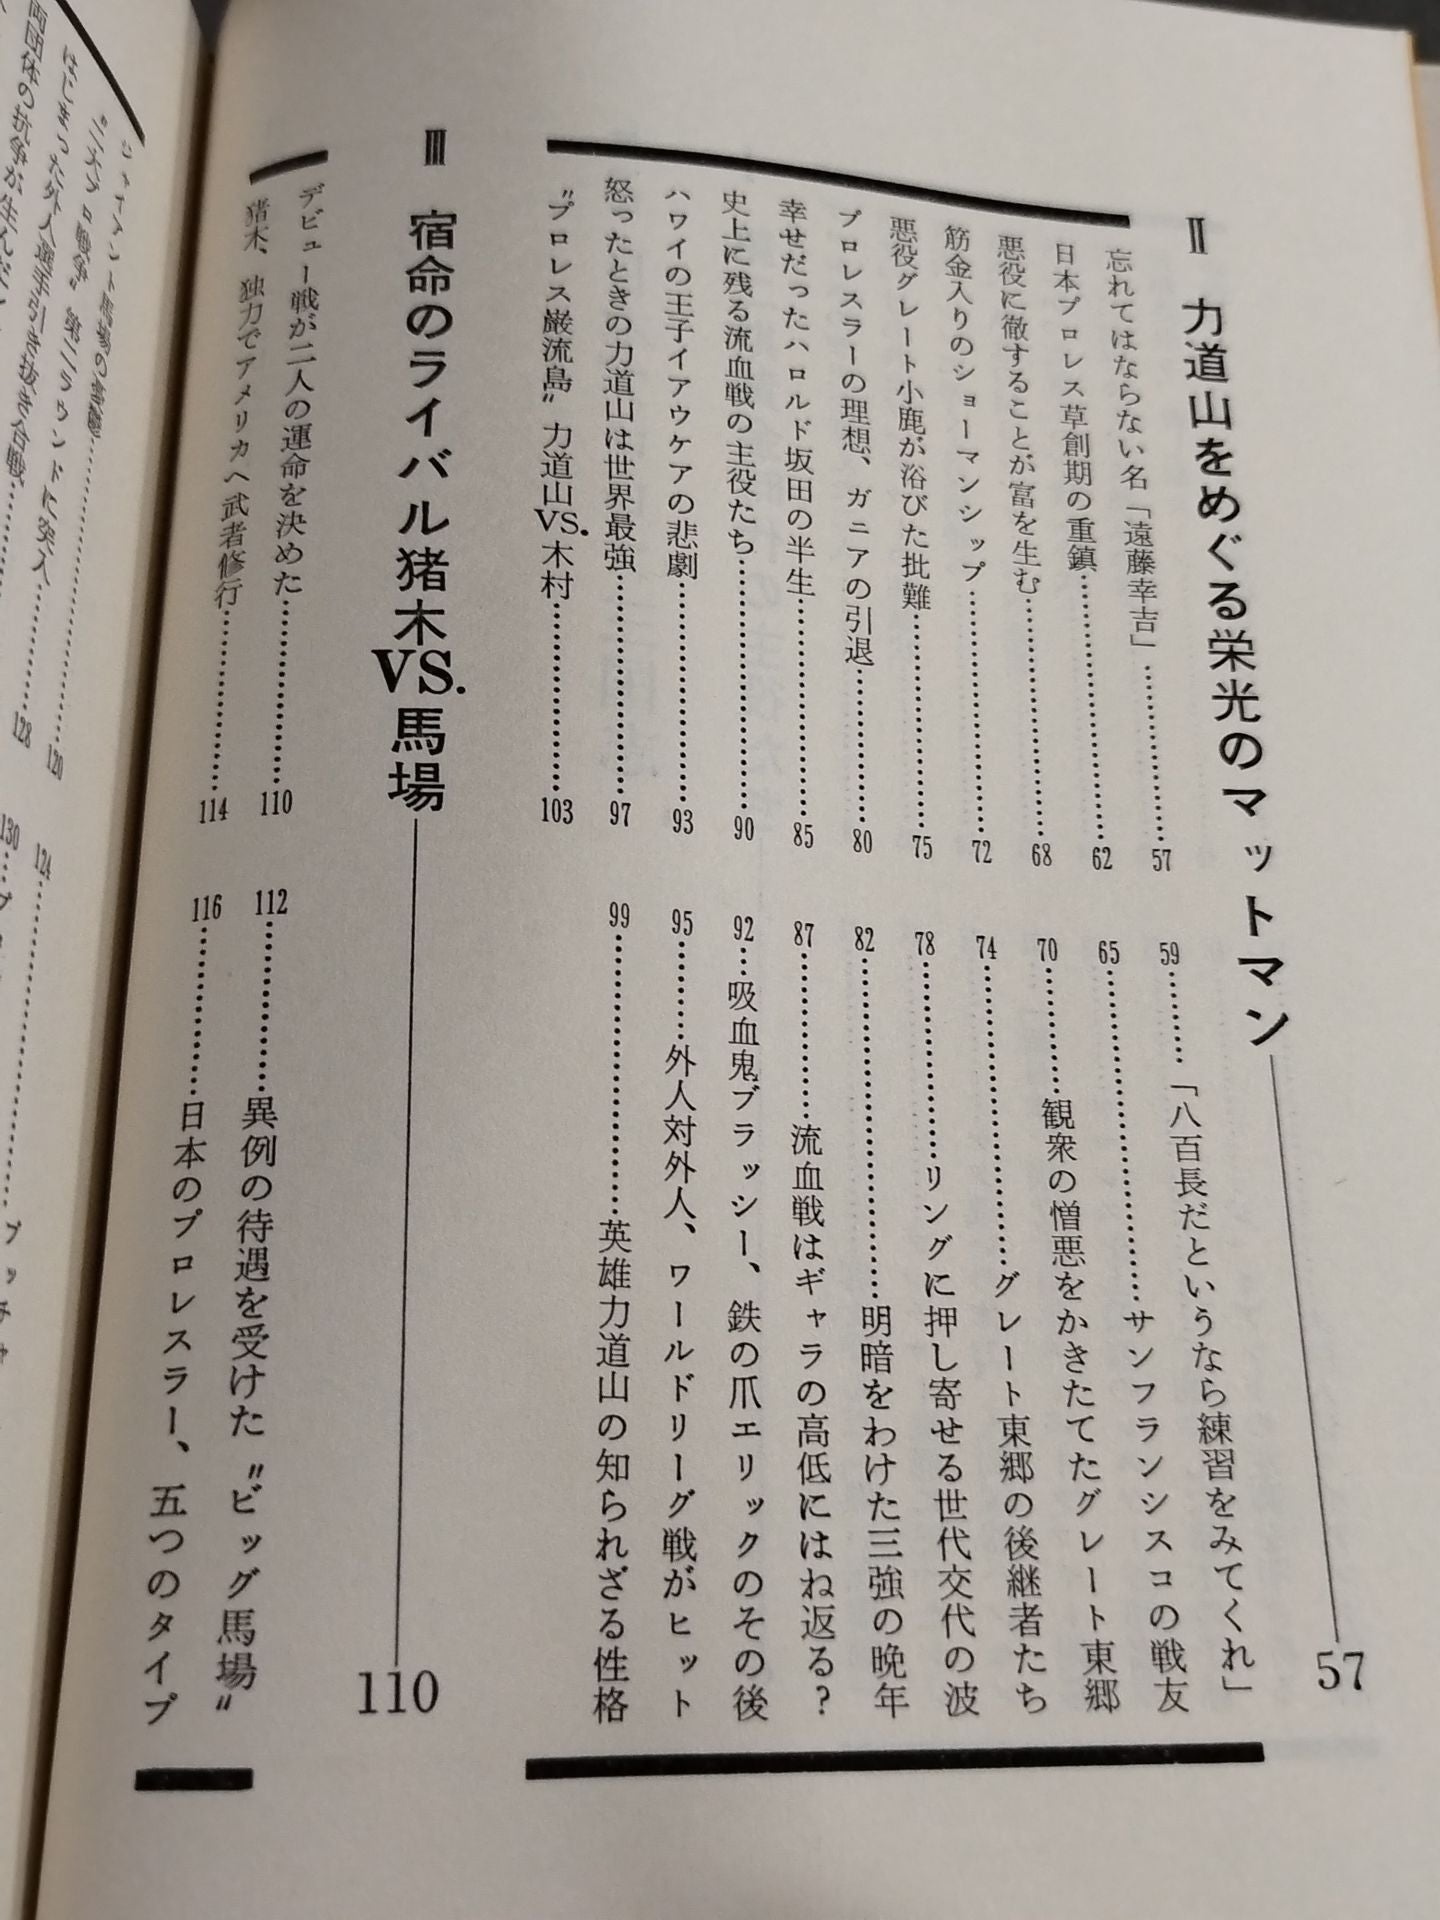 Ⅱ 力道山をめぐる栄光のマットマン 57
忘れてはならない名「遠藤幸吉」…………57
59………「八百長だというなら練習をみてくれ」
日本プロレス草創期の重鎮…………62
65…………サンフランシスコの戦友
悪役に徹することが富を生む…………68
70………観衆の憎悪をかきたてたグレート東郷
筋金入りのショーマンシップ…………72
74…………グレート東郷の後継者たち
悪役グレート小鹿が浴びた批難…………75
78…………リングに押し寄せる世代交代の波
プロレスラーの理想、ガニアの引退…………80
82…………明暗をわけた三強の晩年
幸せだったハロルド坂田の半生…………85
87…………流血戦はギャラの高低にはね返る?
史上に残る流血戦の主役たち…………90
92…吸血鬼ブラッシー、鉄の爪エリックのその後
ハワイの王子イアウケアの悲劇…………93
95………外人対外人、ワールドリーグ戦がヒット
怒ったときの力道山は世界最強…………97
99…………英雄力道山の知られざる性格
〝プロレス巌流島〟力道山VS.木村…………103
Ⅲ 宿命のライバル猪木VS.馬場 110
デビュー戦が二人の運命を決めた…………110
112…………異例の待遇を受けた〝ビッグ馬場〟
猪木、独力でアメリカへ武者修行…………114
116…………日本のプロレスラー、五つのタイプ
ジャイアント馬場の…………120
〝プロ戦争〟第二ラウンドに突入…………
124…………
はじまった外人選手引き抜き合戦…………128
130…
両団体の抗争が生んだ